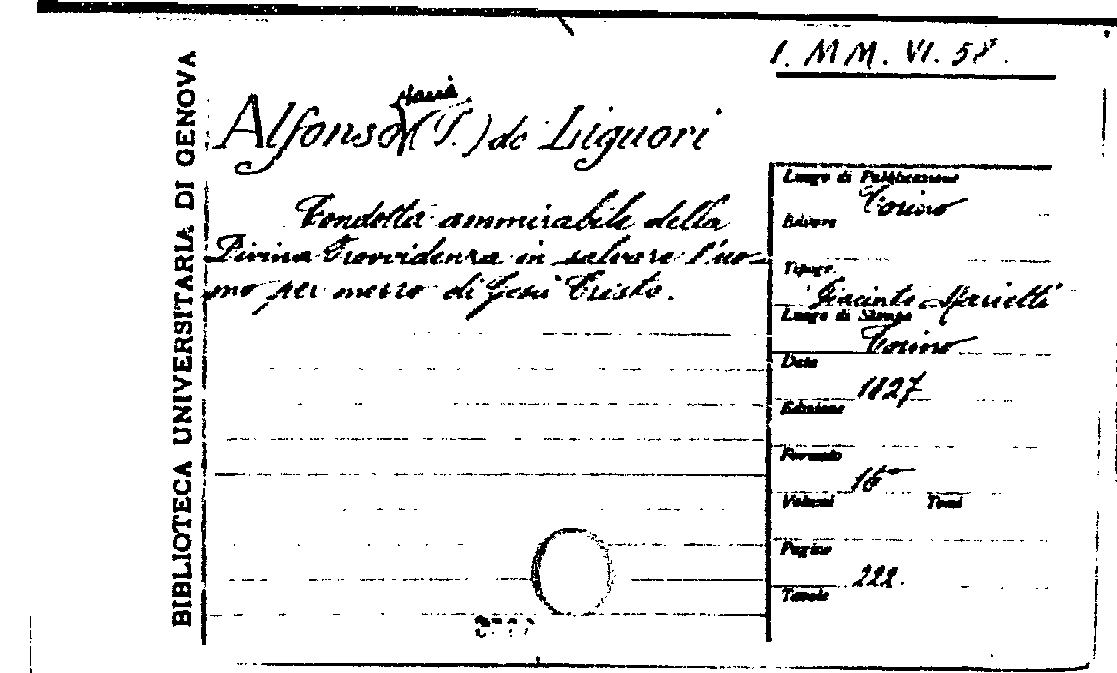 1. MM. VI. 58.
BIBLIOTECA UNIVERSITARIA DI GENOVA
Maria
Alfonso (S.) de Liguori
Condotta ammirabile della
Divina Provvidenza in salvare l'uo-
mo per mezzo di Gesù Cristo.
Luogo di Pubblicazione
Torino
Editore
Tipogr.
Giacinto Marietti
Luogo di Stampa
Torino
Data
1827
Edizione
Formato
16°
Volumi Tomi
Pagine
222.
Tavole